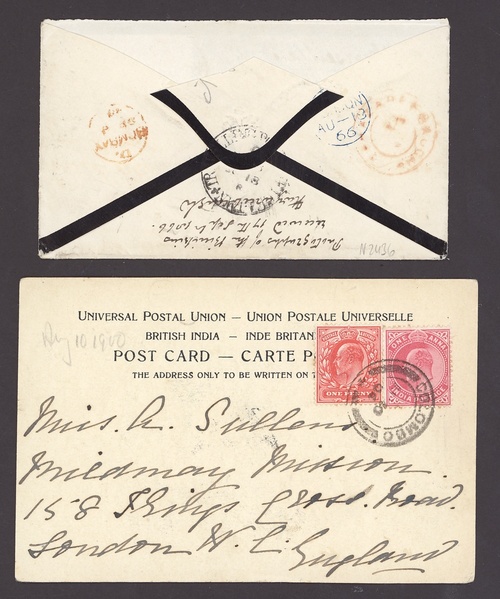 BOMBAY
AU 13
66
Photographs of the
received 17th Sept. 1866
N2436
UNIVERSAL POSTAL UNION – UNION POSTALE UNIVERSELLE
BRITISH INDIA – INDE BRITAN
POST CARD – CARTE P
THE ADDRESS ONLY TO BE WRITTEN ON T
Aug 10 1900
ONE PENNY
ONE ANNA
INDIA
COLOMBO
Miss. A. Sullens
Mildmay Mission
158 Kings Cross. Road.
London W. C. England